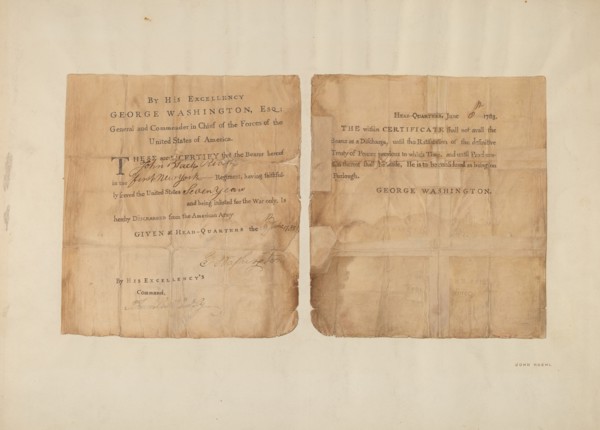 By His Excellency
GEORGE WASHINGTON, Esq;
General and Commander in Chief of the Forces of the
United States of America.
THESE are to CERTIFY that the Bearer hereof
John
in the First New York Regiment, having faithful-
ly served the United States Seven Years
and being inlisted for the War only, is
hereby Discharged from the American Army.
GIVEN at Head-Quarters the
G Washington
By His Excellency's
Command,
Head-Quarters, June 8 1783.
THE within CERTIFICATE shall not avail the
Bearer as a Discharge, until the Ratification of the definitive
Treaty of Peace; previous to which Time, and until Proclama-
tion thereof shall be made, He is to be considered as being on
Furlough.
GEORGE WASHINGTON.